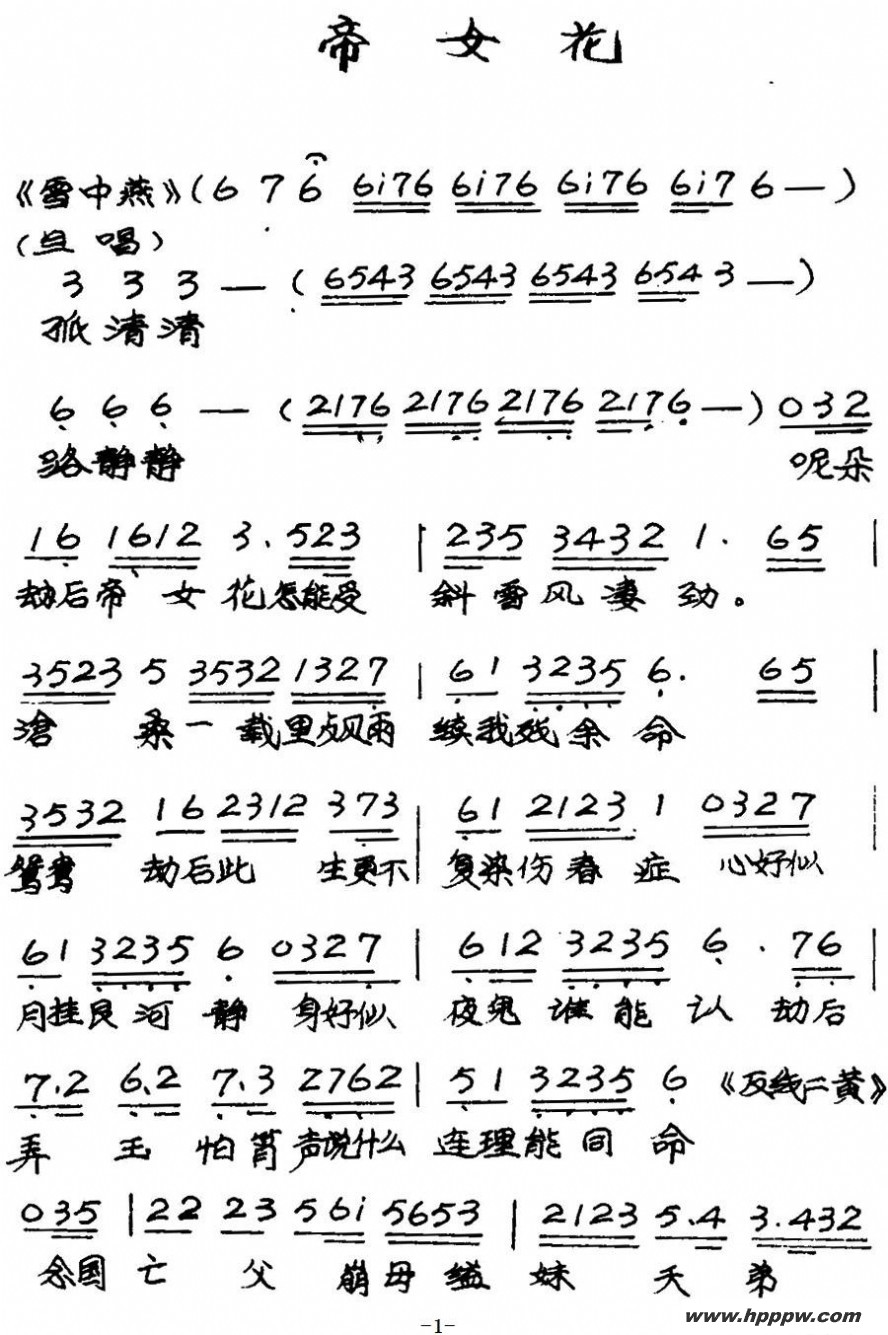 帝女花
《雪中燕》(6 7 6 6i76 6i76 6i76 6i7 6—)
(旦唱)
3 3 3 — (6543 6543 6543 654 3 —)
孤清清
6 6 6 — (2176 2176 2176 217 6 —) 032
路静静 呢朵
16 1612 3.523 | 235 3432 1. 65 |
劫后帝女花怎能受 斜雪风凄劲。
3523 5 3532 1327 | 61 3235 6. 65 |
沧桑一载里点风雨 续我残余命
3532 16 2312 373 | 61 2123 1 0327 |
鸳鸯 劫后此 生更不 复染伤春症 心好似
61 3235 6 0327 | 612 3235 6. 76 |
月挂艮河静 身好似 夜鬼谁能认 劫后
7.2 6.2 7.3 2762 | 51 3235 6 《反线二黄》
弄玉怕箫声说什么 连理能同命
035 | 22 23 56i 5653 | 2123 5.4 3.432
念国亡父崩母缢妹夭弟
-1-
www.hpppw.com